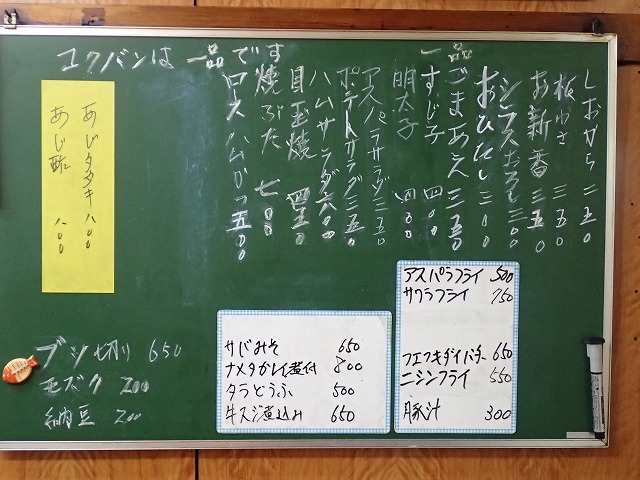 コクバンは一品です
一品
しおから 二五〇
板わさ 三五〇
お新香 三五〇
シラスおろし 三〇〇
おひたし 三〇〇
ごまあえ 三五〇
すじ子 四〇〇
明太子 四〇〇
アスパラサラダ 三五〇
ポテトサラダ 三五〇
ハムサラダ 六〇〇
目玉焼 四五〇
焼ぶた 七〇〇
ロースハムかつ 五〇〇
あじタタキ 八〇〇
あじ酢 八〇〇
アスパラフライ 500
サワラフライ 750
フエフキダイバター 650
ニシンフライ 550
豚汁 300
サバみそ 650
ナメタガレイ煮付 800
タラどうふ 500
牛スジ煮込み 650
ブツ切り 650
モズク 200
納豆 200